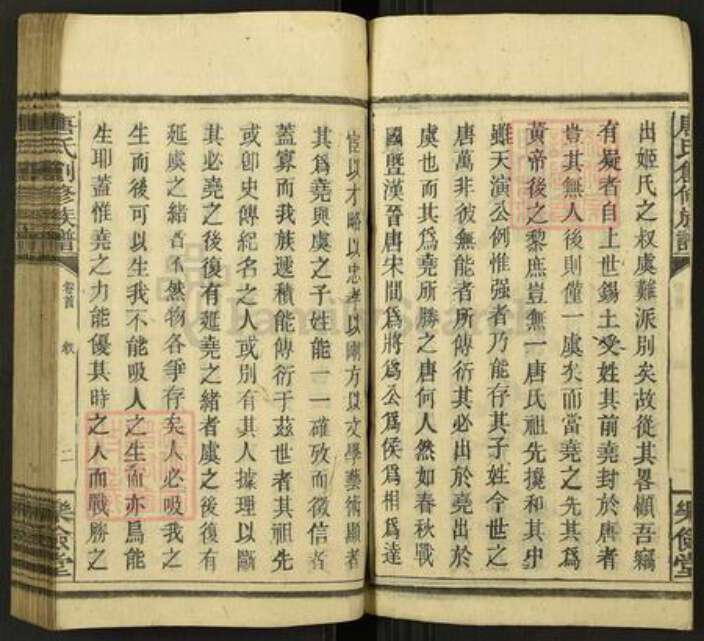 出姬氏之叔虞難派別矣故從其畧頓吾竊
有疑者自上世錫土受姓其前堯封於唐者
豈其無人後則僅一虞矣而當堯之先其爲
黃帝後之黎庶豈無一唐氏祖先攙和其中
雖天演公例惟强者乃能存其子姓今世之
唐萬非彼無能者所傳衍其必出於堯出於
虞也而其爲堯所勝之唐何人然如春秋戰
國曁漢晉唐宋間爲將爲公爲侯爲相爲達
宦以才略以忠孝以剛方以文學藝術顯者
其爲堯與虞之子姓能一一確攷而徵信者
蓋寡而我族遞積能傳衍于茲世者其祖先
或卽史傳紀名之人或別有其人據理以斷
其必堯之後復有延堯之緒者虞之後復有
延虞之緒者不然物各爭存矣人必吸我之
生而後可以生我不能吸人之生而亦烏能
生耶蓋惟堯之力能優其時之人而戰勝之
唐氏創修族譜
卷首 敘 二
樂儉堂
唐氏創修族譜
樂儉堂
FamilySearch